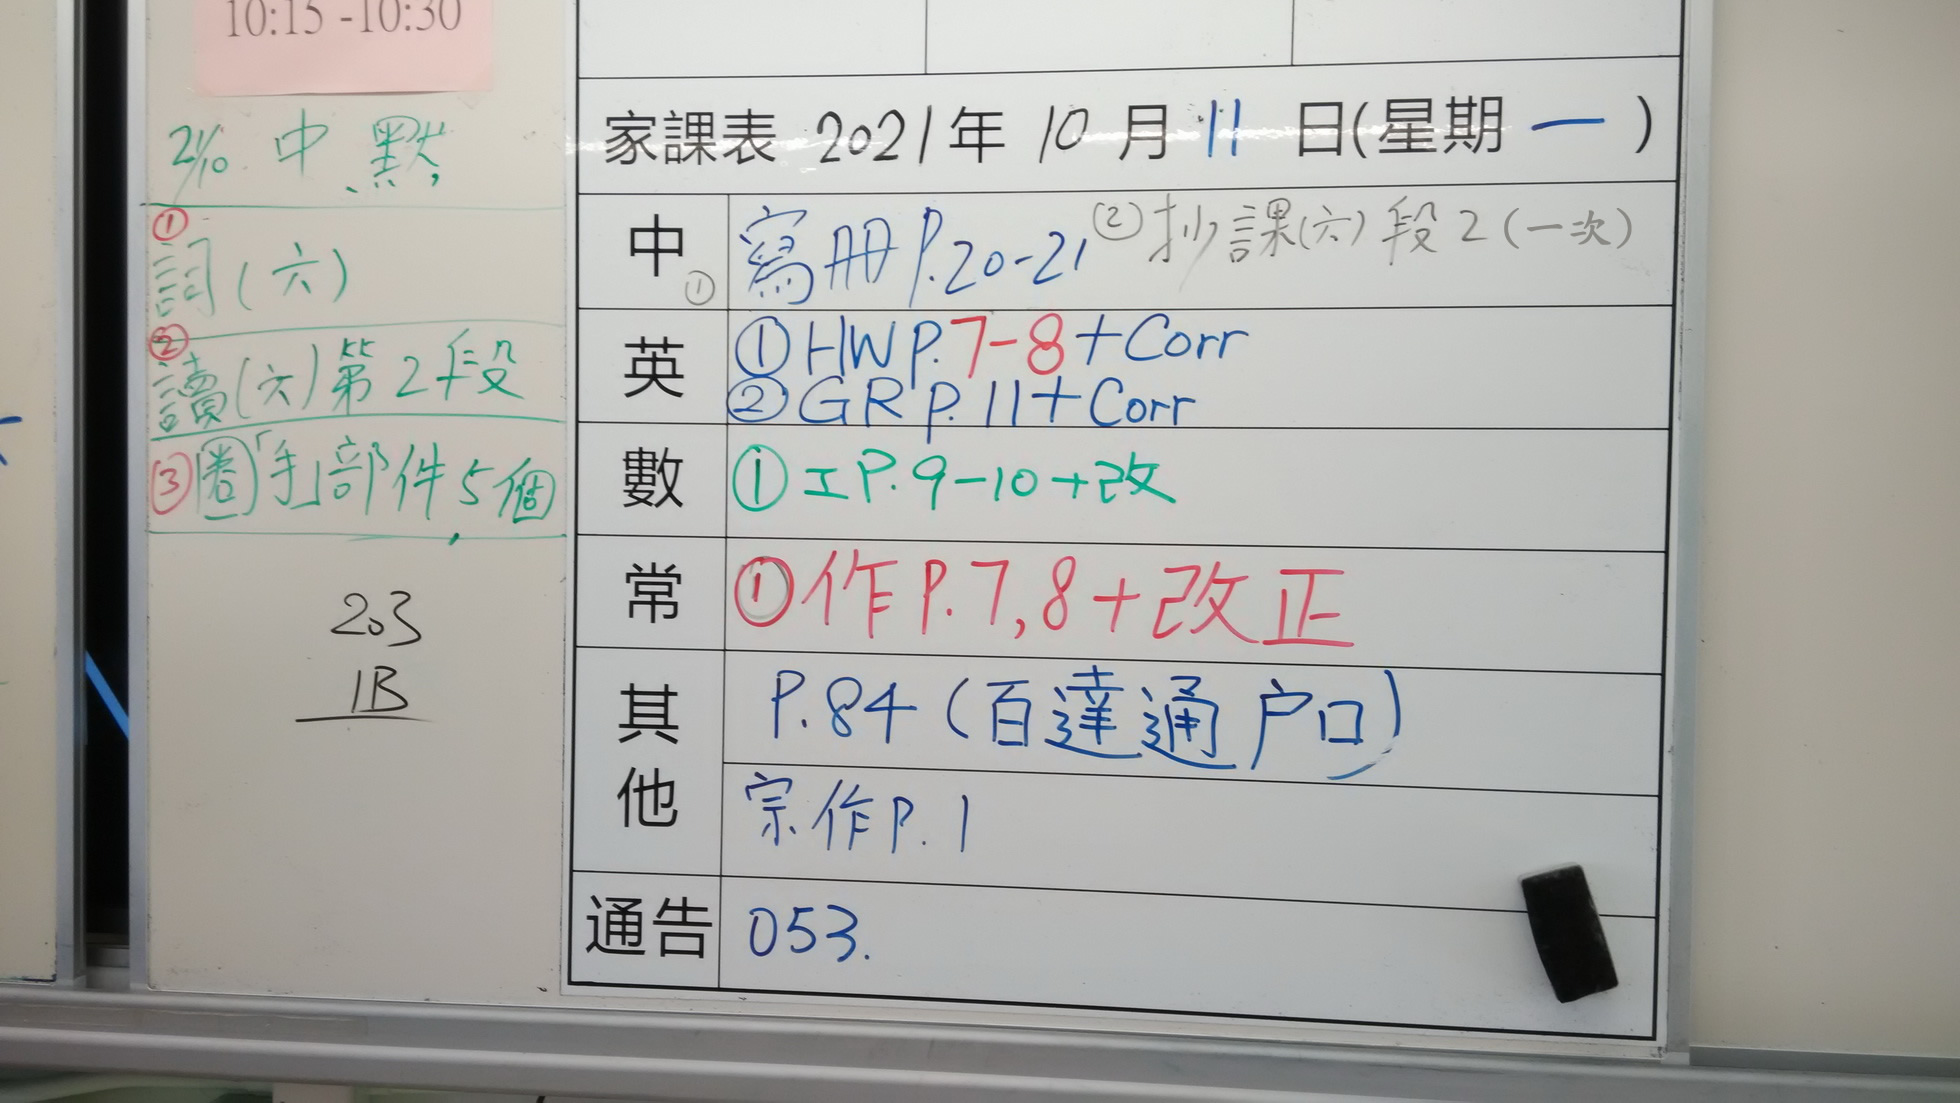 10:15 -10:30
21/10. 中默
① 詞(六)
② 讀(六)第2段
③ 圈「手」部件5個
203
1B
家課表 2021年 10月 11日(星期一)
中 ① 寫冊P.20-21 ② 抄課(六)段2(一次)
英 ① HWP.7-8+Corr
② GRP.11+Corr
數 ① 工P.9-10+改
常 ① 作P.7,8+改正
其他 P.84(百達通户口)
宗作P.1
通告 053.